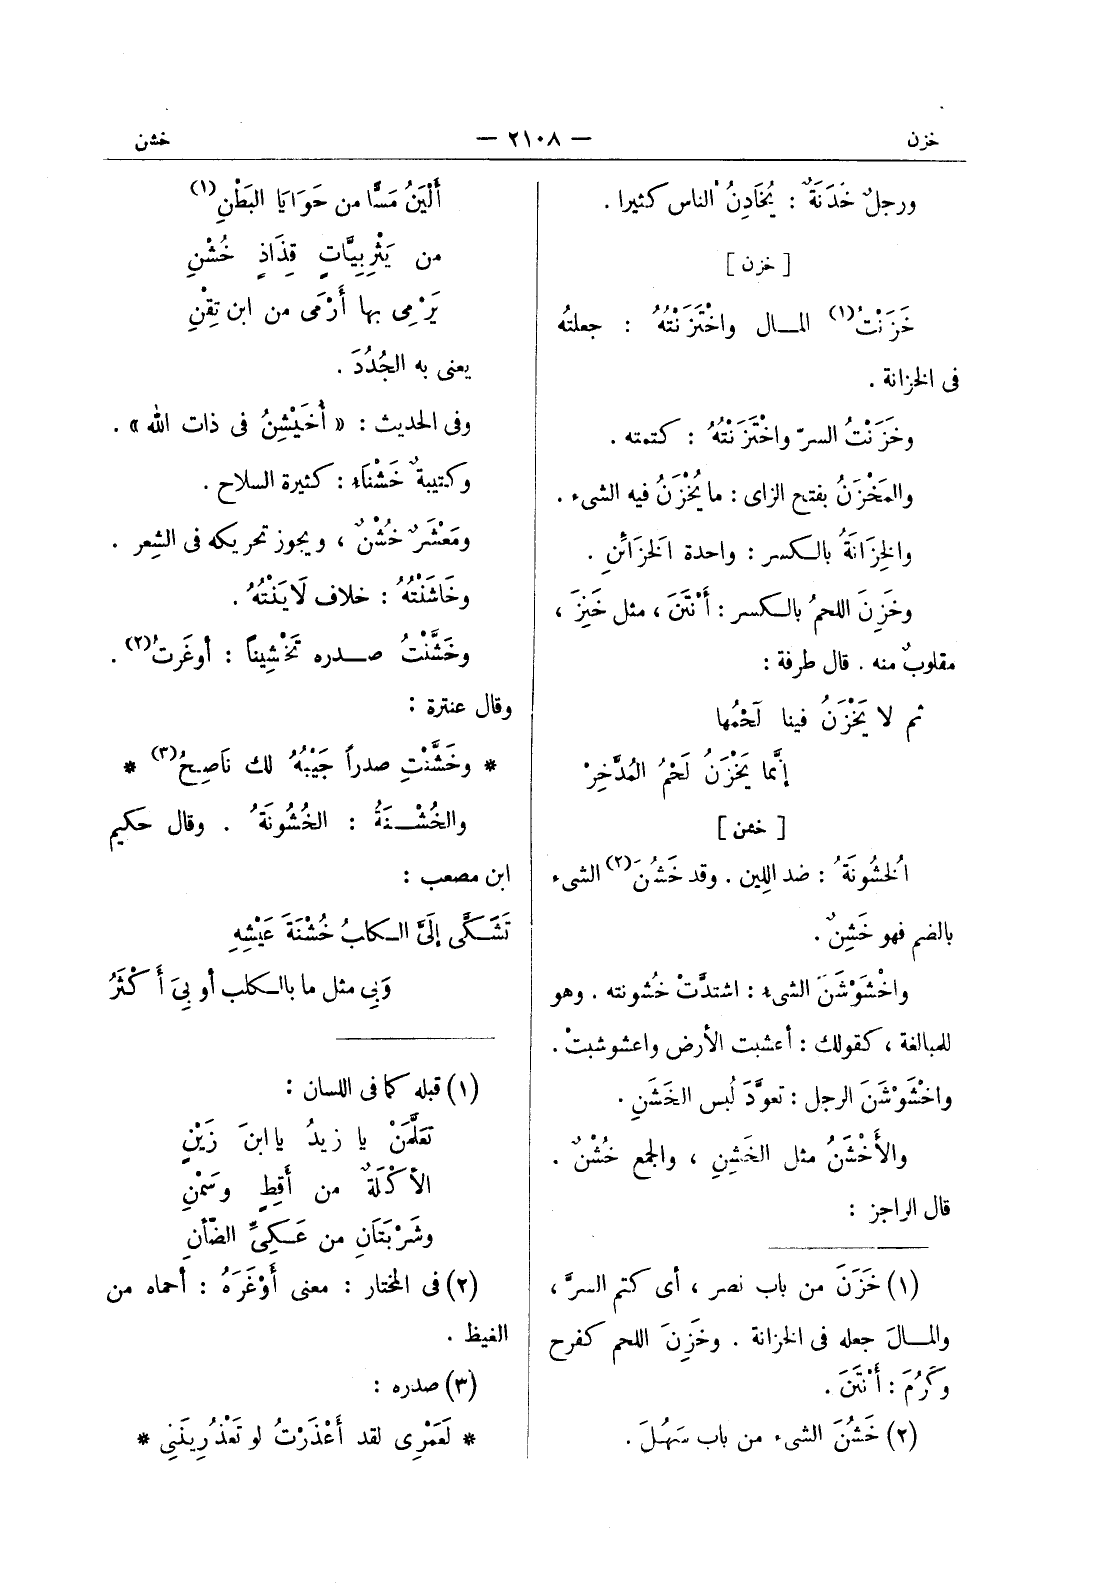 خزن — ٢١٠٨ — خشن
ورجلٌ خُدَنَةٌ : يُخَادِنُ الناس كثيرا .
[ خزن ]
خَزَنْتُ(١) المال واخْتَزَنْتُهُ : جعلتُه
فى الخزانة .
وخَزَنْتُ السرّ واخْتَزَنْتُهُ : كتمته .
والمَخْزَنُ بفتح الزاى : ما يُخْزَنُ فيه الشىء .
والخِزَانَةُ بالكسر : واحدة الخَزَائِنِ .
وخَزِنَ اللحمُ بالكسر : أَنْتَنَ ، مثل خَنِزَ ،
مقلوبٌ منه . قال طرفة :
ثم لا يَخْزَنُ فينا لَحْمُها
إنَّما يَخْزَنُ لَحْمُ المُدَّخِرْ
[ خشن ]
الخُشُونَةُ : ضد اللين . وقد خَشُنَ(٢) الشىء
بالضم فهو خَشِنٌ .
واخْشَوْشَنَ الشىء : اشتدَّتْ خُشونته . وهو
للمبالغة ، كقولك : أعشبت الأرض واعشوشبتْ .
واخْشَوْشَنَ الرجل : تعوَّدَ لُبس الخَشَنِ .
والأَخْشَنُ مثل الخَشِنِ ، والجمع خُشْنٌ .
قال الراجز :
(١) خَزَنَ من باب نصر ، أى كتم السرَّ ،
والمالَ جعله فى الخزانة . وخَزِنَ اللحم كفرح
وكَرُمَ : أَنْتَنَ .
(٢) خَشُنَ الشىء من باب سَهُلَ .
أَلْيَنُ مَسًّا من حَوَايَا البَطْنِ(١)
من يَثْرِبِيَّاتٍ قِذَاذٍ خُشْنِ
يَرْمِى بها أَرْمَى من ابن تِقْنِ
يعنى به الجُدُدَ .
وفى الحديث : « أُخَيْشِنُ فى ذات الله » .
وكتيبةٌ خَشْنَاء : كثيرة السلاح .
ومَعْشَرٌ خُشْنٌ ، ويجوز تحريكه فى الشِعر .
وخَاشَنْتُهُ : خلاف لَايَنْتُهُ .
وخَشَّنْتُ صدره تَخْشِيناً : أوغَرتُ(٢) .
وقال عنترة :
* وخَشَّنْتِ صدراً جَيْبُهُ لك نَاصِحُ(٣) *
والخُشْنَةُ : الخُشُونَةُ . وقال حكيم
ابن مصعب :
تَشَكَّى إلَىَّ الكلبُ خُشْنَةَ عَيْشِهِ
وَبِى مثل ما بالكلب أو بِىَ أَكْثَرُ
(١) قبله كما فى اللسان :
تعَلَّمَنْ يا زيدُ يا ابنَ زَيْنِ
الأكْلَةٌ من أَقِطٍ وسَمْنِ
وشَرْبَتَانِ من عَكِىِّ الضّأنِ
(٢) فى المختار : معنى أَوْغَرَهُ : أحماه من
الغيظ .
(٣) صدره :
* لَعَمْرِى لقد أَعْذَرْتُ لو تَعْذُرِينَنِى *